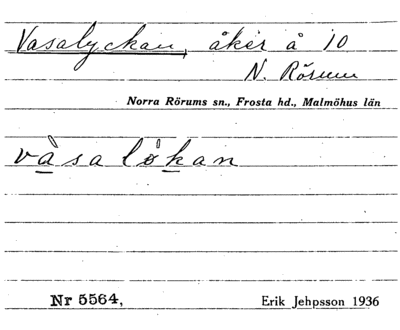 Vasalyckan, åker å 10
N. Rörum
Norra Rörums sn., Frosta hd., Malmöhus län
vàsalökan
Nr 5564,
Erik Jehpsson 1936